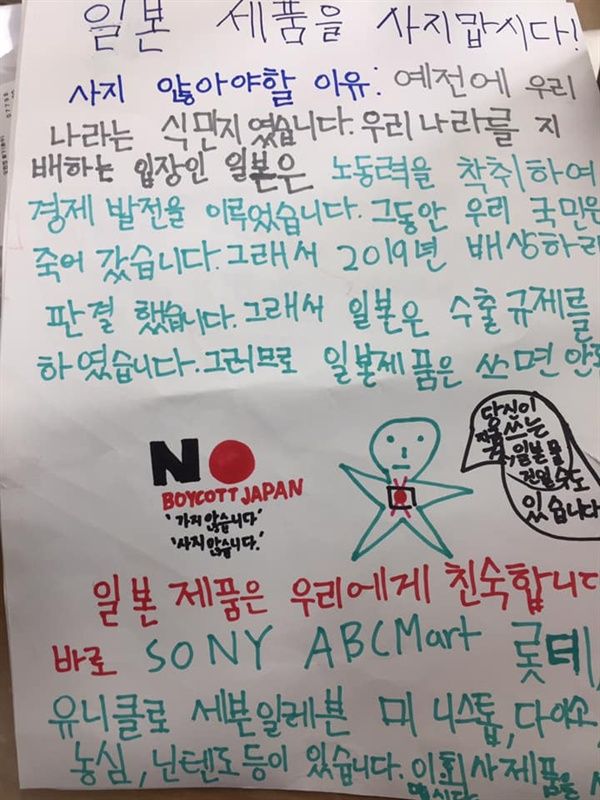 일본 제품을 사지맙시다!
사지 않아야할 이유: 예전에 우리
나라는 식민지였습니다. 우리나라를 지
배하는 입장인 일본은 노동력을 착취하여
경제 발전을 이루었습니다. 그동안 우리 국민은
죽어 갔습니다. 그래서 2019년 배상하라
판결 했습니다. 그래서 일본은 수출규제를
하였습니다. 그러므로 일본제품은 쓰면 안
NO
BOYCOTT JAPAN
'가지않습니다'
'사지않습니다.'
당신이
쓰는
일본물
건일수도
있습니다
일본 제품은 우리에게 친숙합니다
바로 SONY ABCMart 롯데,
유니클로 세븐일레븐 미니스톱, 다이소
농심, 닌텐도 등이 있습니다. 이회사제품을